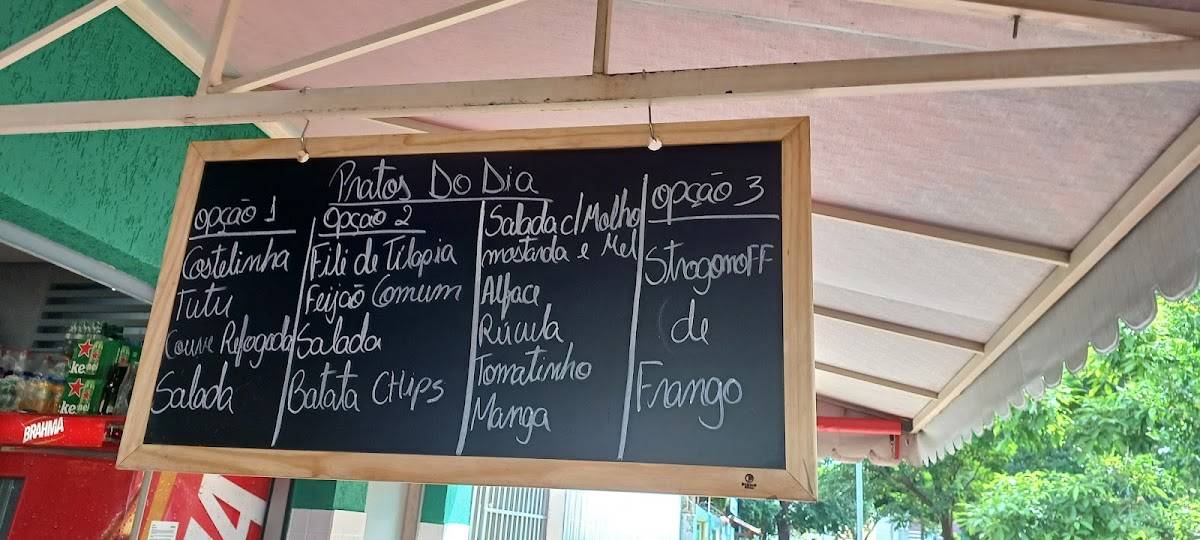 Pratos Do Dia
opção 1
Costelinha
Tutu
Couve Refogada
Salada
opção 2
Fili de Tilapia
Feijão Comum
Salada
Batata CHips
Salada c/ Molho
mostarda e Mel
Alface
Rúcula
Tomatinho
Manga
opção 3
StrogonoFF
de
Frango
BRAHMA